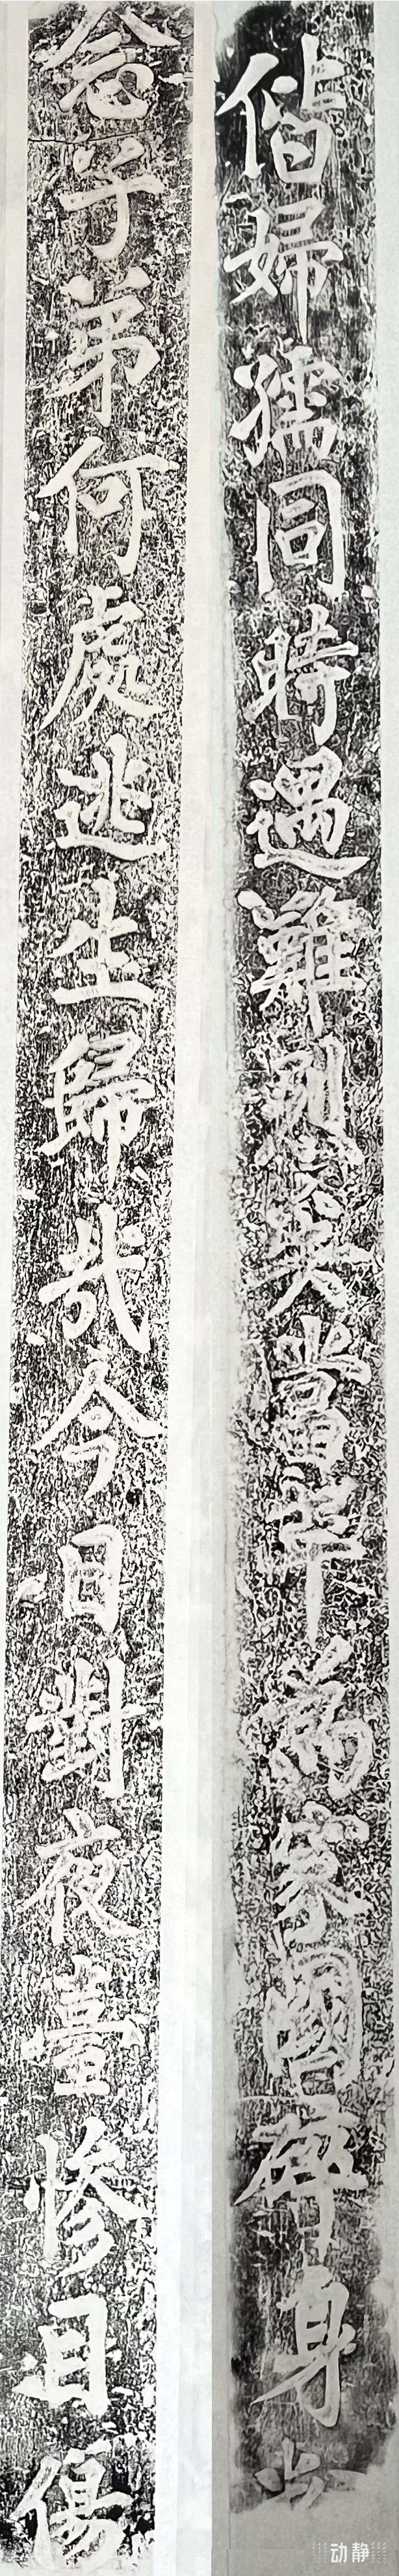 偕婦孺同時遇難烈矣當年為家國碎身
念子弟何處逃生歸哉今日對夜臺慘目傷
动静